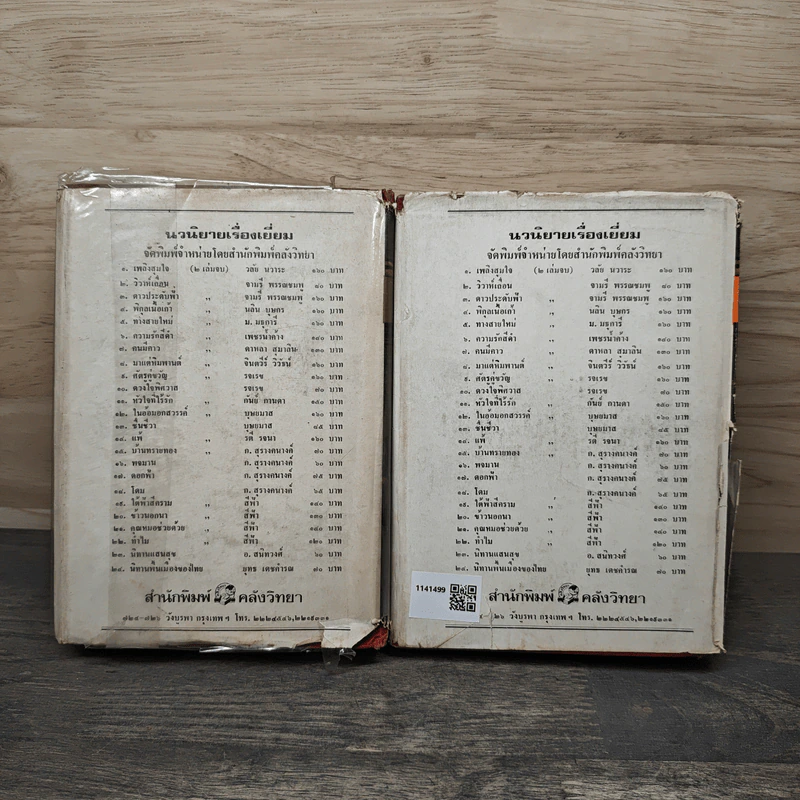 นวนิยายเรื่องเยี่ยม
จัดพิมพ์จำหน่ายโดยสำนักพิมพ์คลังวิทยา
๑. เพลิงสมใจ (๒ เล่มจบ) วลัย นวาระ ๑๖๐ บาท
๒. วิวาห์เถื่อน จามรี พรรณชมพู ๘๐ บาท
๓. ดาวประดับฟ้า ,, จามรี พรรณชมพู ๑๖๐ บาท
๔. พิกุลเนื้อเก้า ,, นลิน บุษกร ๑๖๐ บาท
๕. ทางสายใหม่ ,, ม. มธุการี ๑๖๐ บาท
๖. ความรักสีดำ ,, เพชรน้ำค้าง ๑๔๐ บาท
๗. คนมีคาว ,, ดาหลา สมาลิน ๑๓๐ บาท
๘. มาแต่หิมพานต์ ,, จินตวีร์ วิวัธน์ ๑๖๐ บาท
๙. ศัตรูคู่ขวัญ ,, รจเรข ๑๖๐ บาท
๑๐. ดวงใจพิศวาส ,, รจเรข ๗๐ บาท
๑๑. หัวใจที่ไร้รัก ,, กันย์ กานดา ๑๕๐ บาท
๑๒. ในอ้อมอกสวรรค์ ,, บุษยมาส ๑๖๐ บาท
๑๓. ชื่นชีวา บุษยมาส ๔๕ บาท
๑๔. แพ้ ,, รตี รจนา ๑๖๐ บาท
๑๕. บ้านทรายทอง ,, ก. สุรางคนางค์ ๗๐ บาท
๑๖. พจมาน ก. สุรางคนางค์ ๖๐ บาท
๑๗. ดอกฟ้า ก. สุรางคนางค์ ๗๕ บาท
๑๘. โดม ก. สุรางคนางค์ ๖๕ บาท
๑๙. ใต้ฟ้าสีคราม ,, สีฟ้า ๑๔๐ บาท
๒๐. ข้าวนอกนา ,, สีฟ้า ๑๓๐ บาท
๒๑. คุณหมอช่วยด้วย ,, สีฟ้า ๑๔๐ บาท
๒๒. ทำไม ,, สีฟ้า ๑๒๐ บาท
๒๓. นิทานแสนสุข อ. สนิทวงศ์ ๖๐ บาท
๒๔. นิทานพื้นเมืองของไทย ยุทธ เดชคำรณ ๗๐ บาท
สำนักพิมพ์ คลังวิทยา
๗๒๔-๗๒๖ วังบูรพา กรุงเทพ ฯ โทร. ๒๒๒๔๕๔๖,๒๒๑๕๓๓๑
นวนิยายเรื่องเยี่ยม
จัดพิมพ์จำหน่ายโดยสำนักพิมพ์คลังวิทยา
๑. เพลิงสมใจ (๒ เล่มจบ) วลัย นวาระ ๑๖๐ บาท
๒. วิวาห์เถื่อน จามรี พรรณชมพู ๘๐ บาท
๓. ดาวประดับฟ้า ,, จามรี พรรณชมพู ๑๖๐ บาท
๔. พิกุลเนื้อเก้า ,, นลิน บุษกร ๑๖๐ บาท
๕. ทางสายใหม่ ,, ม. มธุการี ๑๖๐ บาท
๖. ความรักสีดำ ,, เพชรน้ำค้าง ๑๔๐ บาท
๗. คนมีคาว ,, ดาหลา สมาลิน ๑๓๐ บาท
๘. มาแต่หิมพานต์ ,, จินตวีร์ วิวัธน์ ๑๖๐ บาท
๙. ศัตรูคู่ขวัญ ,, รจเรข ๑๖๐ บาท
๑๐. ดวงใจพิศวาส ,, รจเรข ๗๐ บาท
๑๑. หัวใจที่ไร้รัก ,, กันย์ กานดา ๑๕๐ บาท
๑๒. ในอ้อมอกสวรรค์ ,, บุษยมาส ๑๖๐ บาท
๑๓. ชื่นชีวา บุษยมาส ๔๕ บาท
๑๔. แพ้ ,, รตี รจนา ๑๖๐ บาท
๑๕. บ้านทรายทอง ,, ก. สุรางคนางค์ ๗๐ บาท
๑๖. พจมาน ก. สุรางคนางค์ ๖๐ บาท
๑๗. ดอกฟ้า ก. สุรางคนางค์ ๗๕ บาท
๑๘. โดม ก. สุรางคนางค์ ๖๕ บาท
๑๙. ใต้ฟ้าสีคราม ,, สีฟ้า ๑๔๐ บาท
๒๐. ข้าวนอกนา ,, สีฟ้า ๑๓๐ บาท
๒๑. คุณหมอช่วยด้วย ,, สีฟ้า ๑๔๐ บาท
๒๒. ทำไม ,, สีฟ้า ๑๒๐ บาท
๒๓. นิทานแสนสุข อ. สนิทวงศ์ ๖๐ บาท
๒๔. นิทานพื้นเมืองของไทย ยุทธ เดชคำรณ ๗๐ บาท
1141499
สำนักพิมพ์ คลังวิทยา
๗๒๖ วังบูรพา กรุงเทพ ฯ โทร. ๒๒๒๔๕๔๖,๒๒๑๕๓๓๑